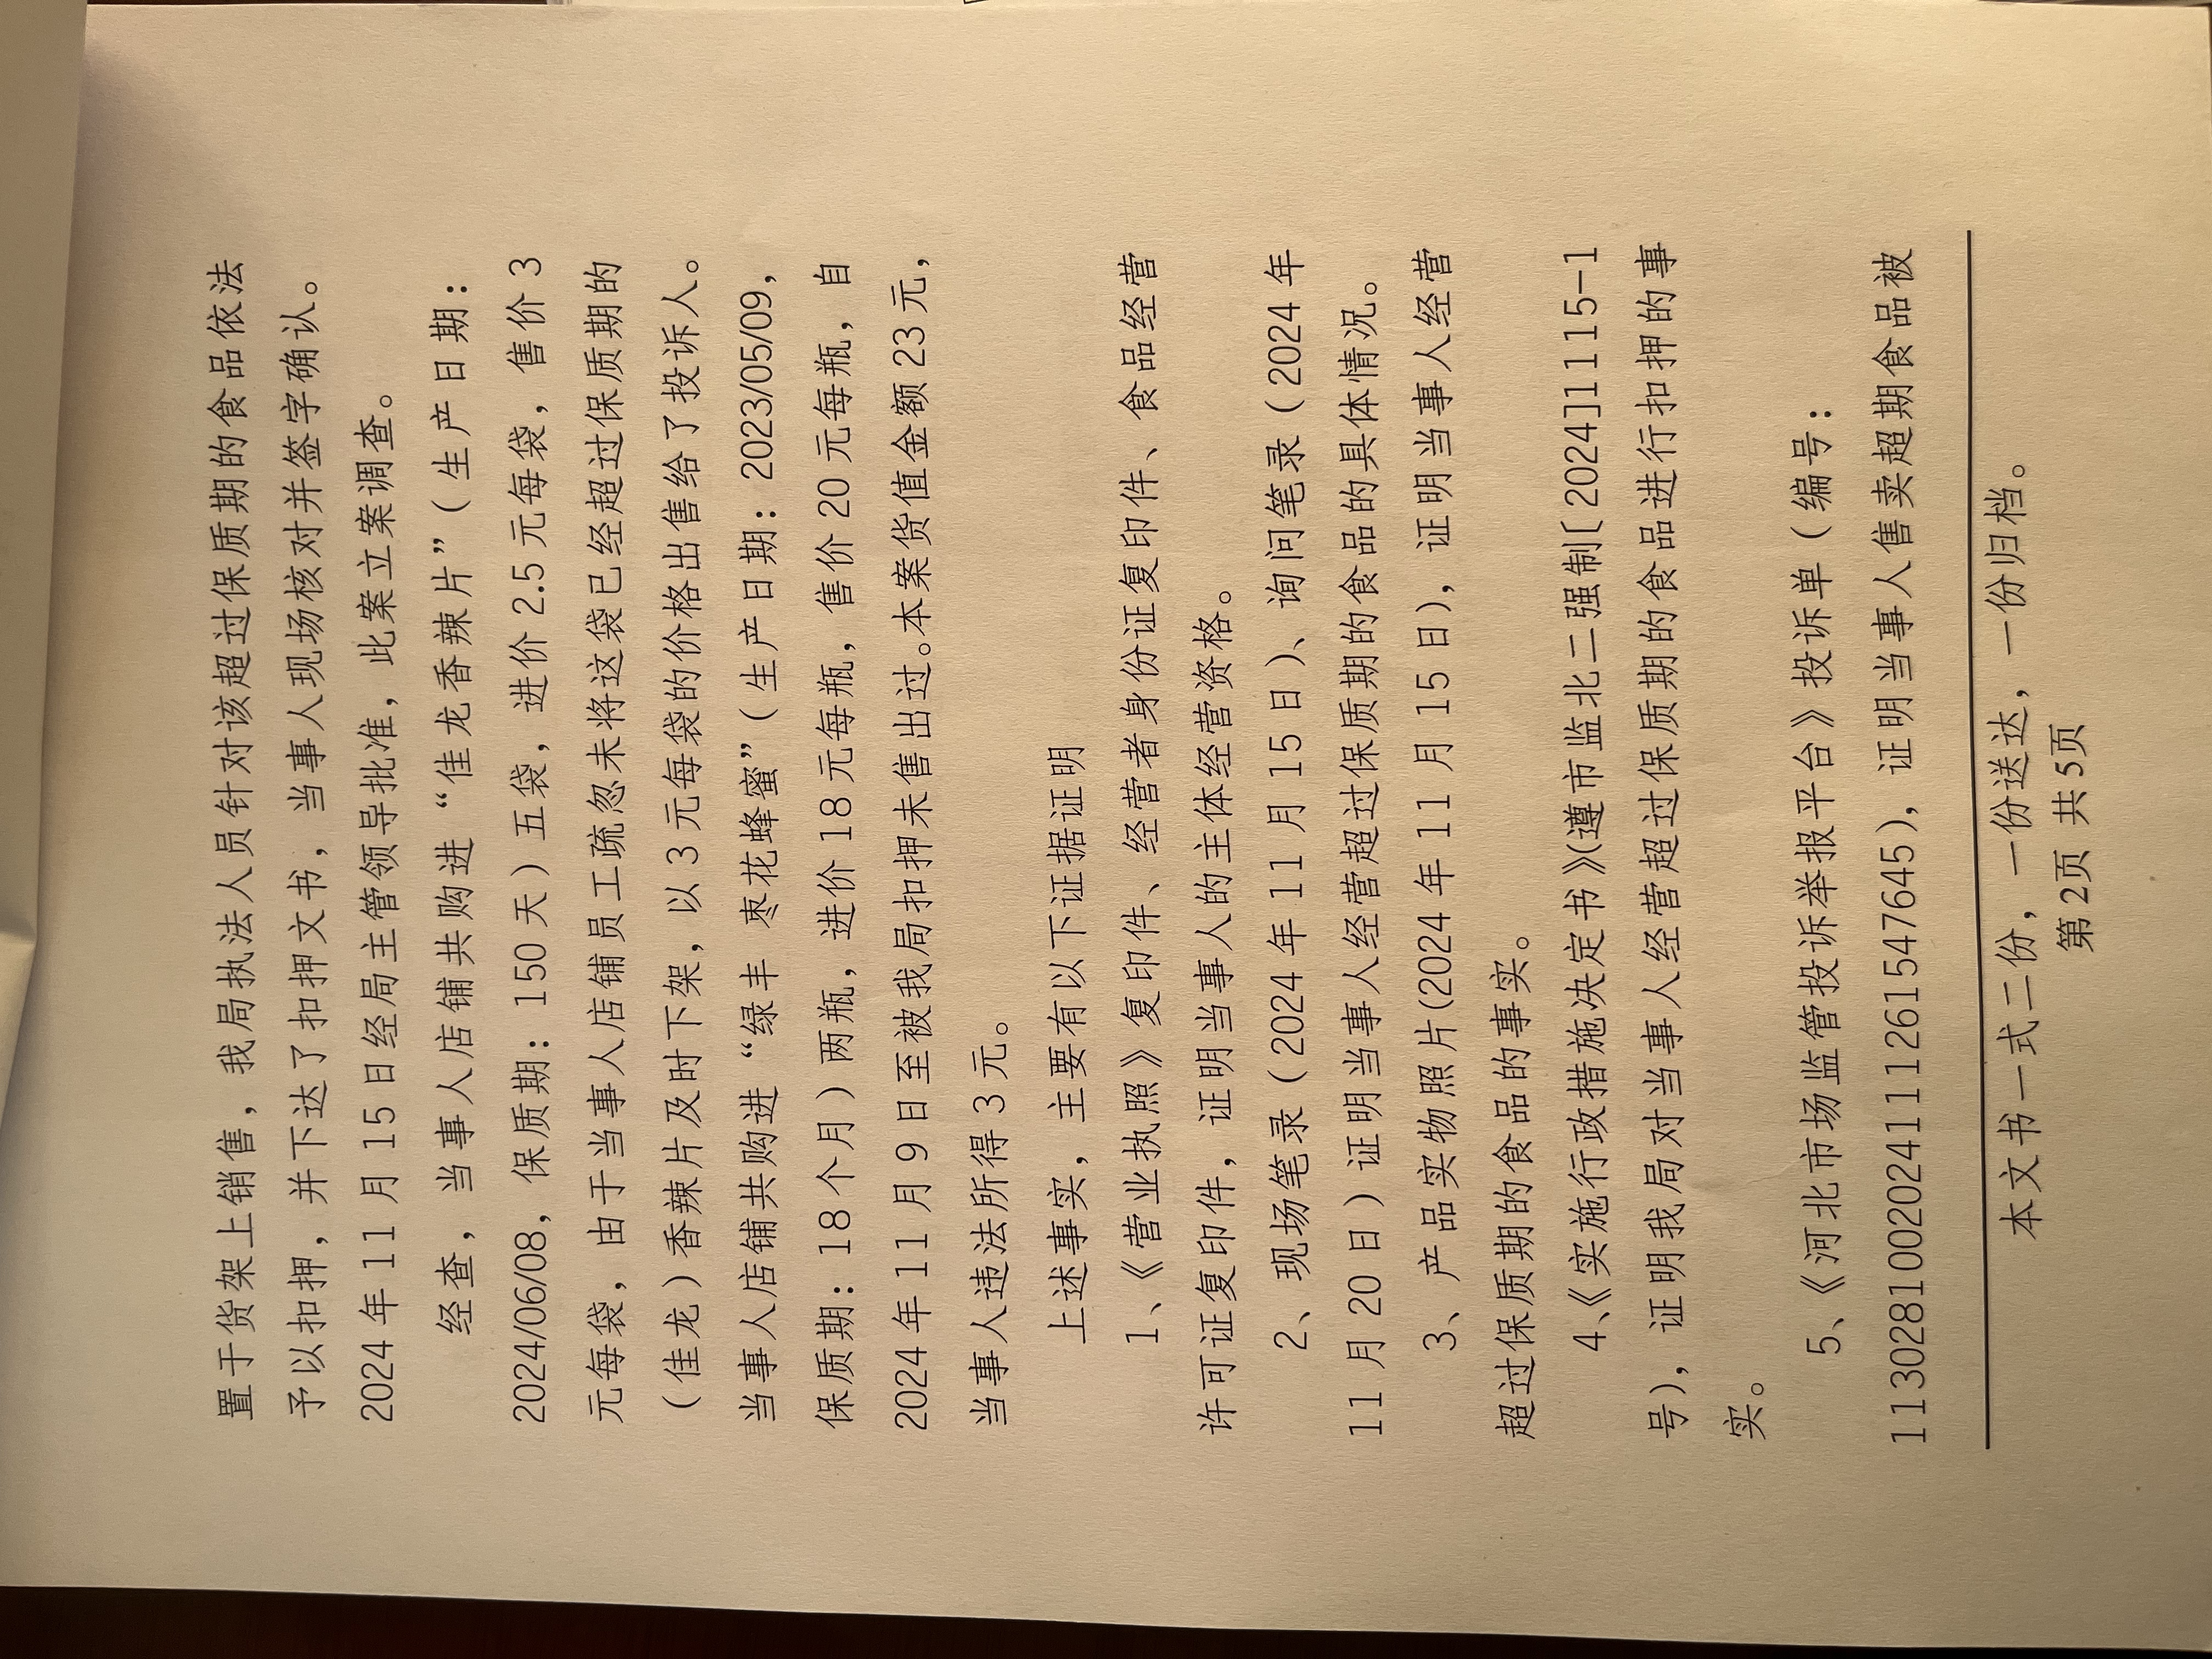 置于货架上销售，我局执法人员针对该超过保质期的食品依法
予以扣押，并下达了扣押文书，当事人现场核对并签字确认。
2024 年 11 月 15 日经局主管领导批准，此案立案调查。
经查，当事人店铺共购进 “佳龙香辣片”（生产日期：
2024/06/08，保质期：150 天）五袋，进价 2.5 元每袋，售价 3
元每袋，由于当事人店铺员工疏忽未将这袋已经超过保质期的
（佳龙）香辣片及时下架，以 3 元每袋的价格出售给了投诉人。
当事人店铺共购进 “绿丰 枣花蜂蜜”（生产日期：2023/05/09，
保质期：18 个月）两瓶，进价 18 元每瓶，售价 20 元每瓶，自
2024 年 11 月 9 日至被我局扣押未售出过。本案货值金额 23 元，
当事人违法所得 3 元。
上述事实，主要有以下证据证明
1、《营业执照》复印件、经营者身份证复印件、食品经营
许可证复印件，证明当事人的主体经营资格。
2、现场笔录（2024 年 11 月 15 日）、询问笔录（2024 年
11 月 20 日）证明当事人经营超过保质期的食品的具体情况。
3、产品实物照片(2024 年 11 月 15 日），证明当事人经营
超过保质期的食品的事实。
4、《实施行政措施决定书》（遵市监北二强制〔2024]1115-1
号），证明我局对当事人经营超过保质期的食品进行扣押的事
实。
5、《河北市场监管投诉举报平台》投诉单（编号：
1130281002024111261547645），证明当事人售卖超期食品被
本文书一式二份，一份送达，一份归档。
第 2页 共 5页